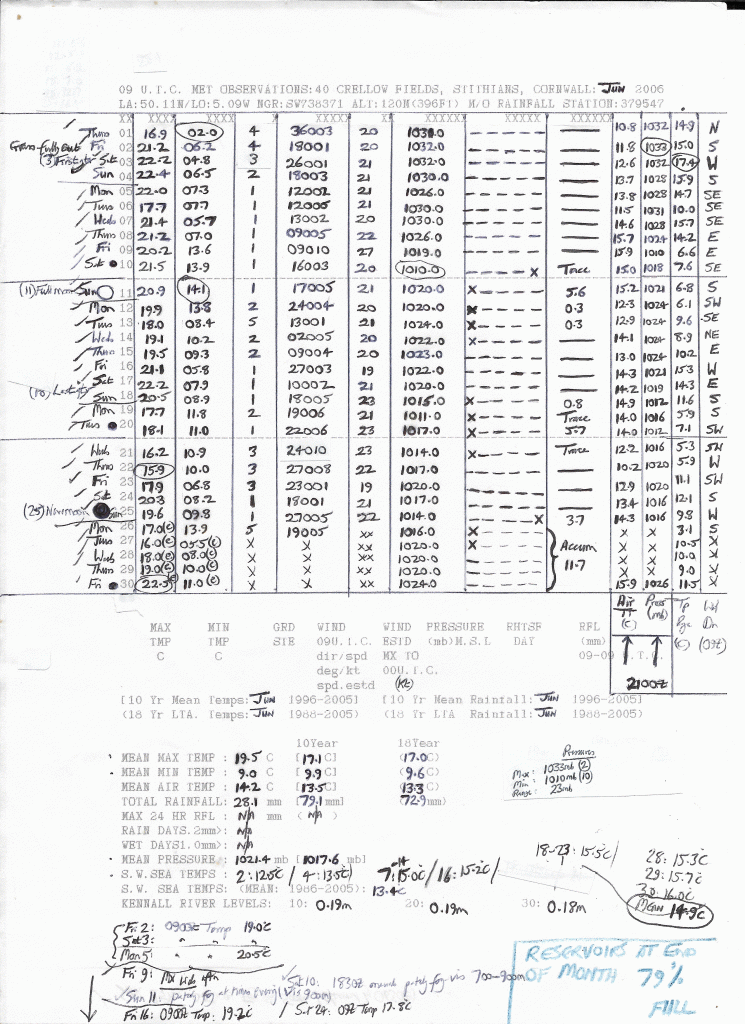 09 U.T.C. MET OBSERVATIONS:40 CRELLOW FIELDS, STITHIANS, CORNWALL: JUN 2006
LA:50.11N/LO:5.09W NGR:SW738371 ALT:120M(396FT) M/O RAINFALL STATION:379547
Thurs 01 16.9 02.0 4 36003 20 1031.0 10.8 1032 14.9 N
Fri 02 21.2 06.2 4 18001 20 1032.0 11.8 1033 15.0 S
(3) First qtr Sat 03 22.2 04.8 3 26001 21 1032.0 12.6 1032 17.4 W
Sun 04 22.4 06.5 2 18003 21 1030.0 13.7 1028 15.9 S
Mon 05 22.0 07.3 1 12002 21 1026.0 13.8 1028 14.7 SE
Tues 06 17.7 07.7 1 12005 21 1030.0 11.5 1031 10.0 SE
Weds 07 21.4 05.7 1 13002 20 1030.0 14.6 1028 15.7 SE
Thurs 08 21.2 07.0 1 09005 22 1026.0 15.7 1024 14.2 E
Fri 09 20.2 13.6 1 09010 27 1019.0 15.9 1010 6.6 E
Sat 10 21.5 13.9 1 16003 20 1010.0 x Trace 15.0 1018 7.6 SE
(11) Full moon Sun 11 20.9 14.1 1 17005 21 1020.0 x 5.6 15.2 1021 6.8 S
Mon 12 19.9 13.8 2 24004 20 1020.0 x 0.3 12.3 1024 6.1 SW
Tues 13 18.0 08.4 5 13001 21 1024.0 x 0.3 12.9 1024 9.6 SE
Weds 14 19.1 10.2 2 02005 20 1022.0 x 14.1 1024 8.9 NE
Thurs 15 19.5 09.3 2 09004 20 1023.0 13.0 1024 10.2 E
Fri 16 21.1 05.8 1 27003 19 1022.0 14.3 1021 15.3 W
Sat 17 22.2 07.9 1 10002 21 1020.0 14.2 1019 14.3 E
Sun 18 20.5 08.9 1 18005 23 1015.0 x 0.8 14.9 1012 11.6 S
Mon 19 17.7 11.8 2 19006 21 1011.0 x Trace 14.0 1016 5.9 S
Tues 20 18.1 11.0 1 22006 23 1017.0 x 5.7 14.0 1012 7.1 SW
Weds 21 16.2 10.9 3 24010 23 1014.0 x Trace 12.2 1016 5.3 SW
Thurs 22 15.9 10.0 3 27008 22 1017.0 10.2 1020 5.9 W
Fri 23 17.9 06.8 3 23001 19 1020.0 12.9 1020 11.1 SW
Sat 24 20.3 08.2 1 18001 21 1017.0 13.4 1016 12.1 S
(25) New moon Sun 25 19.6 09.8 1 27005 22 1014.0 x 3.7 14.3 1016 9.8 W
Mon 26 17.0(e) 13.9 5 19005 xx 1016.0 x x x 3.1 S
Tues 27 16.0(e) 05.5(e) x x xx 1020.0 x x 10.5 x
Weds 28 18.0(e) 08.0(e) x x xx 1020.0 x x 10.0 x
Thurs 29 19.0(e) 10.0(e) x x xx 1020.0 x x 9.0 x
Fri 30 22.5(e) 11.0(e) x x xx 1024.0 15.9 1026 11.5 x
Accum
11.7
MAX MIN GRD WIND WIND PRESSURE RHTSF RFL
TMP TMP STE 09U.T.C. ESTD (mb)M.S.L DAY (mm)
C C dir/spd MX TO 09-09 U.T.C.
deg/kt 00U.T.C.
spd.estd (kt)
Air TT (C) Press (mb) (C) (09Z)
2100Z
[10 Yr Mean Temps: JUN 1996-2005] [10 Yr Mean Rainfall: JUN 1996-2005]
(18 Yr LTA. Temps: JUN 1988-2005) (18 Yr LTA Rainfall: JUN 1988-2005)
10Year 18Year
MEAN MAX TEMP : 19.5 C [17.1 C] (17.0C)
MEAN MIN TEMP : 9.0 C [9.9 C] (9.6 C)
MEAN AIR TEMP : 14.2 C [13.5C] (13.3 C)
TOTAL RAINFALL: 28.1 mm [79.1 mm] (72.9mm)
MAX 24 HR RFL : N/A mm ( N/A )
RAIN DAYS.2mm>: N/A
WET DAYS1.0mm>: N/A
MEAN PRESSURE: 1021.4 mb [1017.6 mb]
Pressures
Max: 1033mb (2)
Min: 1010mb (10)
Range: 23mb
S.W.SEA TEMPS : 2:12.5c / 4:13.5c / 7-14:15.0c / 16:15.2c / 18-23:15.5c /
28:15.3c
29:15.7c
30:16.0c
MEAN 14.9c
S.W. SEA TEMPS: (MEAN: 1986-2005): 13.4c
KENNALL RIVER LEVELS: 10: 0.19m 20: 0.19m 30: 0.18m
Fri 2: 0900z Temp 19.0c
Sat 3: " "
Mon 5: " " 20.5c
Fri 9:
Sat 10: 1830Z patchy fog vis 700-900m
Sun 11 patchy fog at times Evening (Vis 900m)
Fri 16: 0900z Temp: 19.2c / Sat 24: 09Z Temp 17.8c
RESERVOIRS AT END
OF MONTH 79%
FULL